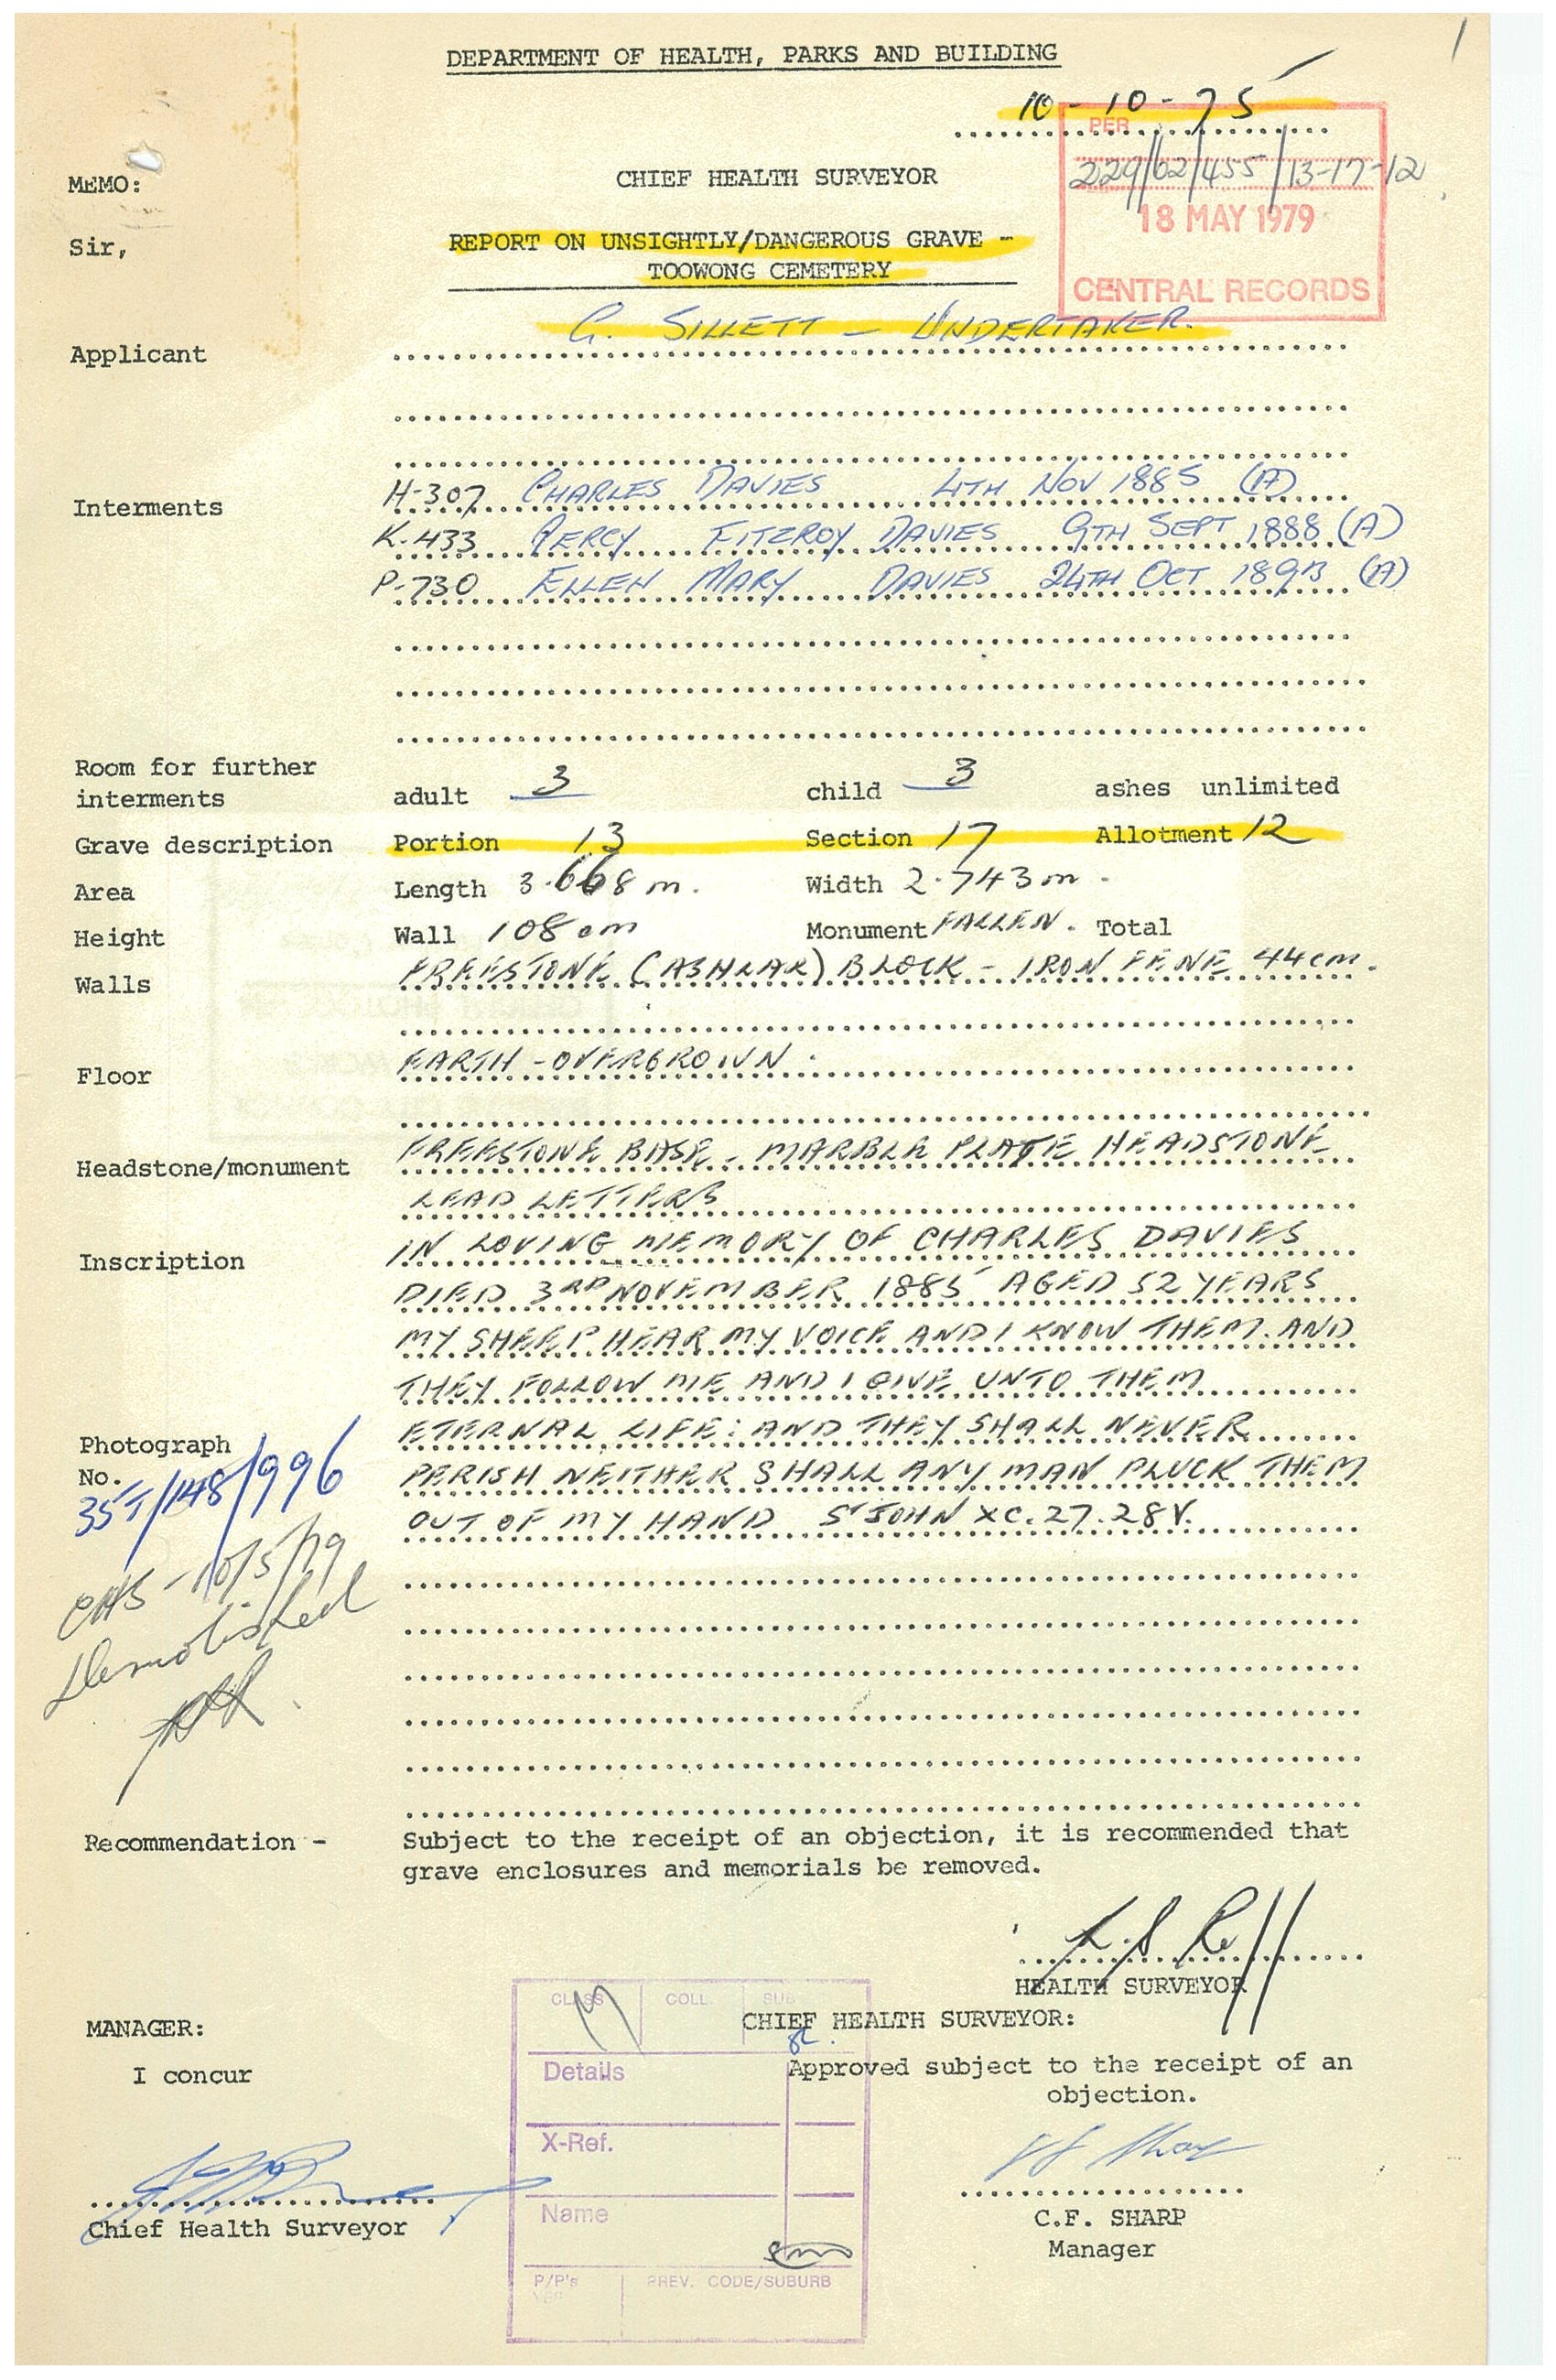 DEPARTMENT OF HEALTH, PARKS AND BUILDING
10-10-75
PER
229/62/455/13-17-12
18 MAY 1979
CENTRAL RECORDS
MEMO:
CHIEF HEALTH SURVEYOR
Sir,
REPORT ON UNSIGHTLY/DANGEROUS GRAVE -
TOOWONG CEMETERY
Applicant G. SILLETT - UNDERTAKER.
Interments H-307 CHARLES DAVIES 4TH NOV 1885 (A)
K-433 PERCY FITZROY DAVIES 9TH SEPT 1888 (A)
P-730 ELLEN MARY DAVIES 24TH OCT (A)
Room for further
interments adult 3 child 3 ashes unlimited
Grave description Portion 13 Section 17 Allotment 12
Area Length 3.668 m. Width 2.743 m.
Height Wall 108 cm Monument FALLEN. Total
Walls FREESTONE (ASHLAR) BLOCK - IRON FENE 44 cm.
Floor EARTH - OVERGROWN.
Headstone/monument FREESTONE BASE - MARBLE PLATE HEADSTONE
LEAD LETTERS
Inscription IN LOVING MEMORY OF CHARLES DAVIES
DIED 3RD NOVEMBER 1885 AGED 52 YEARS
MY SHEEP HEAR MY VOICE AND I KNOW THEM. AND
THEY FOLLOW ME AND I GIVE UNTO THEM
ETERNAL LIFE: AND THEY SHALL NEVER
PERISH NEITHER SHALL ANY MAN PLUCK THEM
OUT OF MY HAND ST JOHN XC. 27. 28 V.
Photograph
No.
35T/148/996
CHS - 10/5/79
Demolished
Recommendation - Subject to the receipt of an objection, it is recommended that
grave enclosures and memorials be removed.
HEALTH SURVEYOR
CLASS COLL. SUB
MANAGER:
CHIEF HEALTH SURVEYOR:
I concur
Approved subject to the receipt of an
objection.
Details
X-Ref.
Name
P/P's PREV. CODE/SUBURB
Chief Health Surveyor
C.F. SHARP
Manager